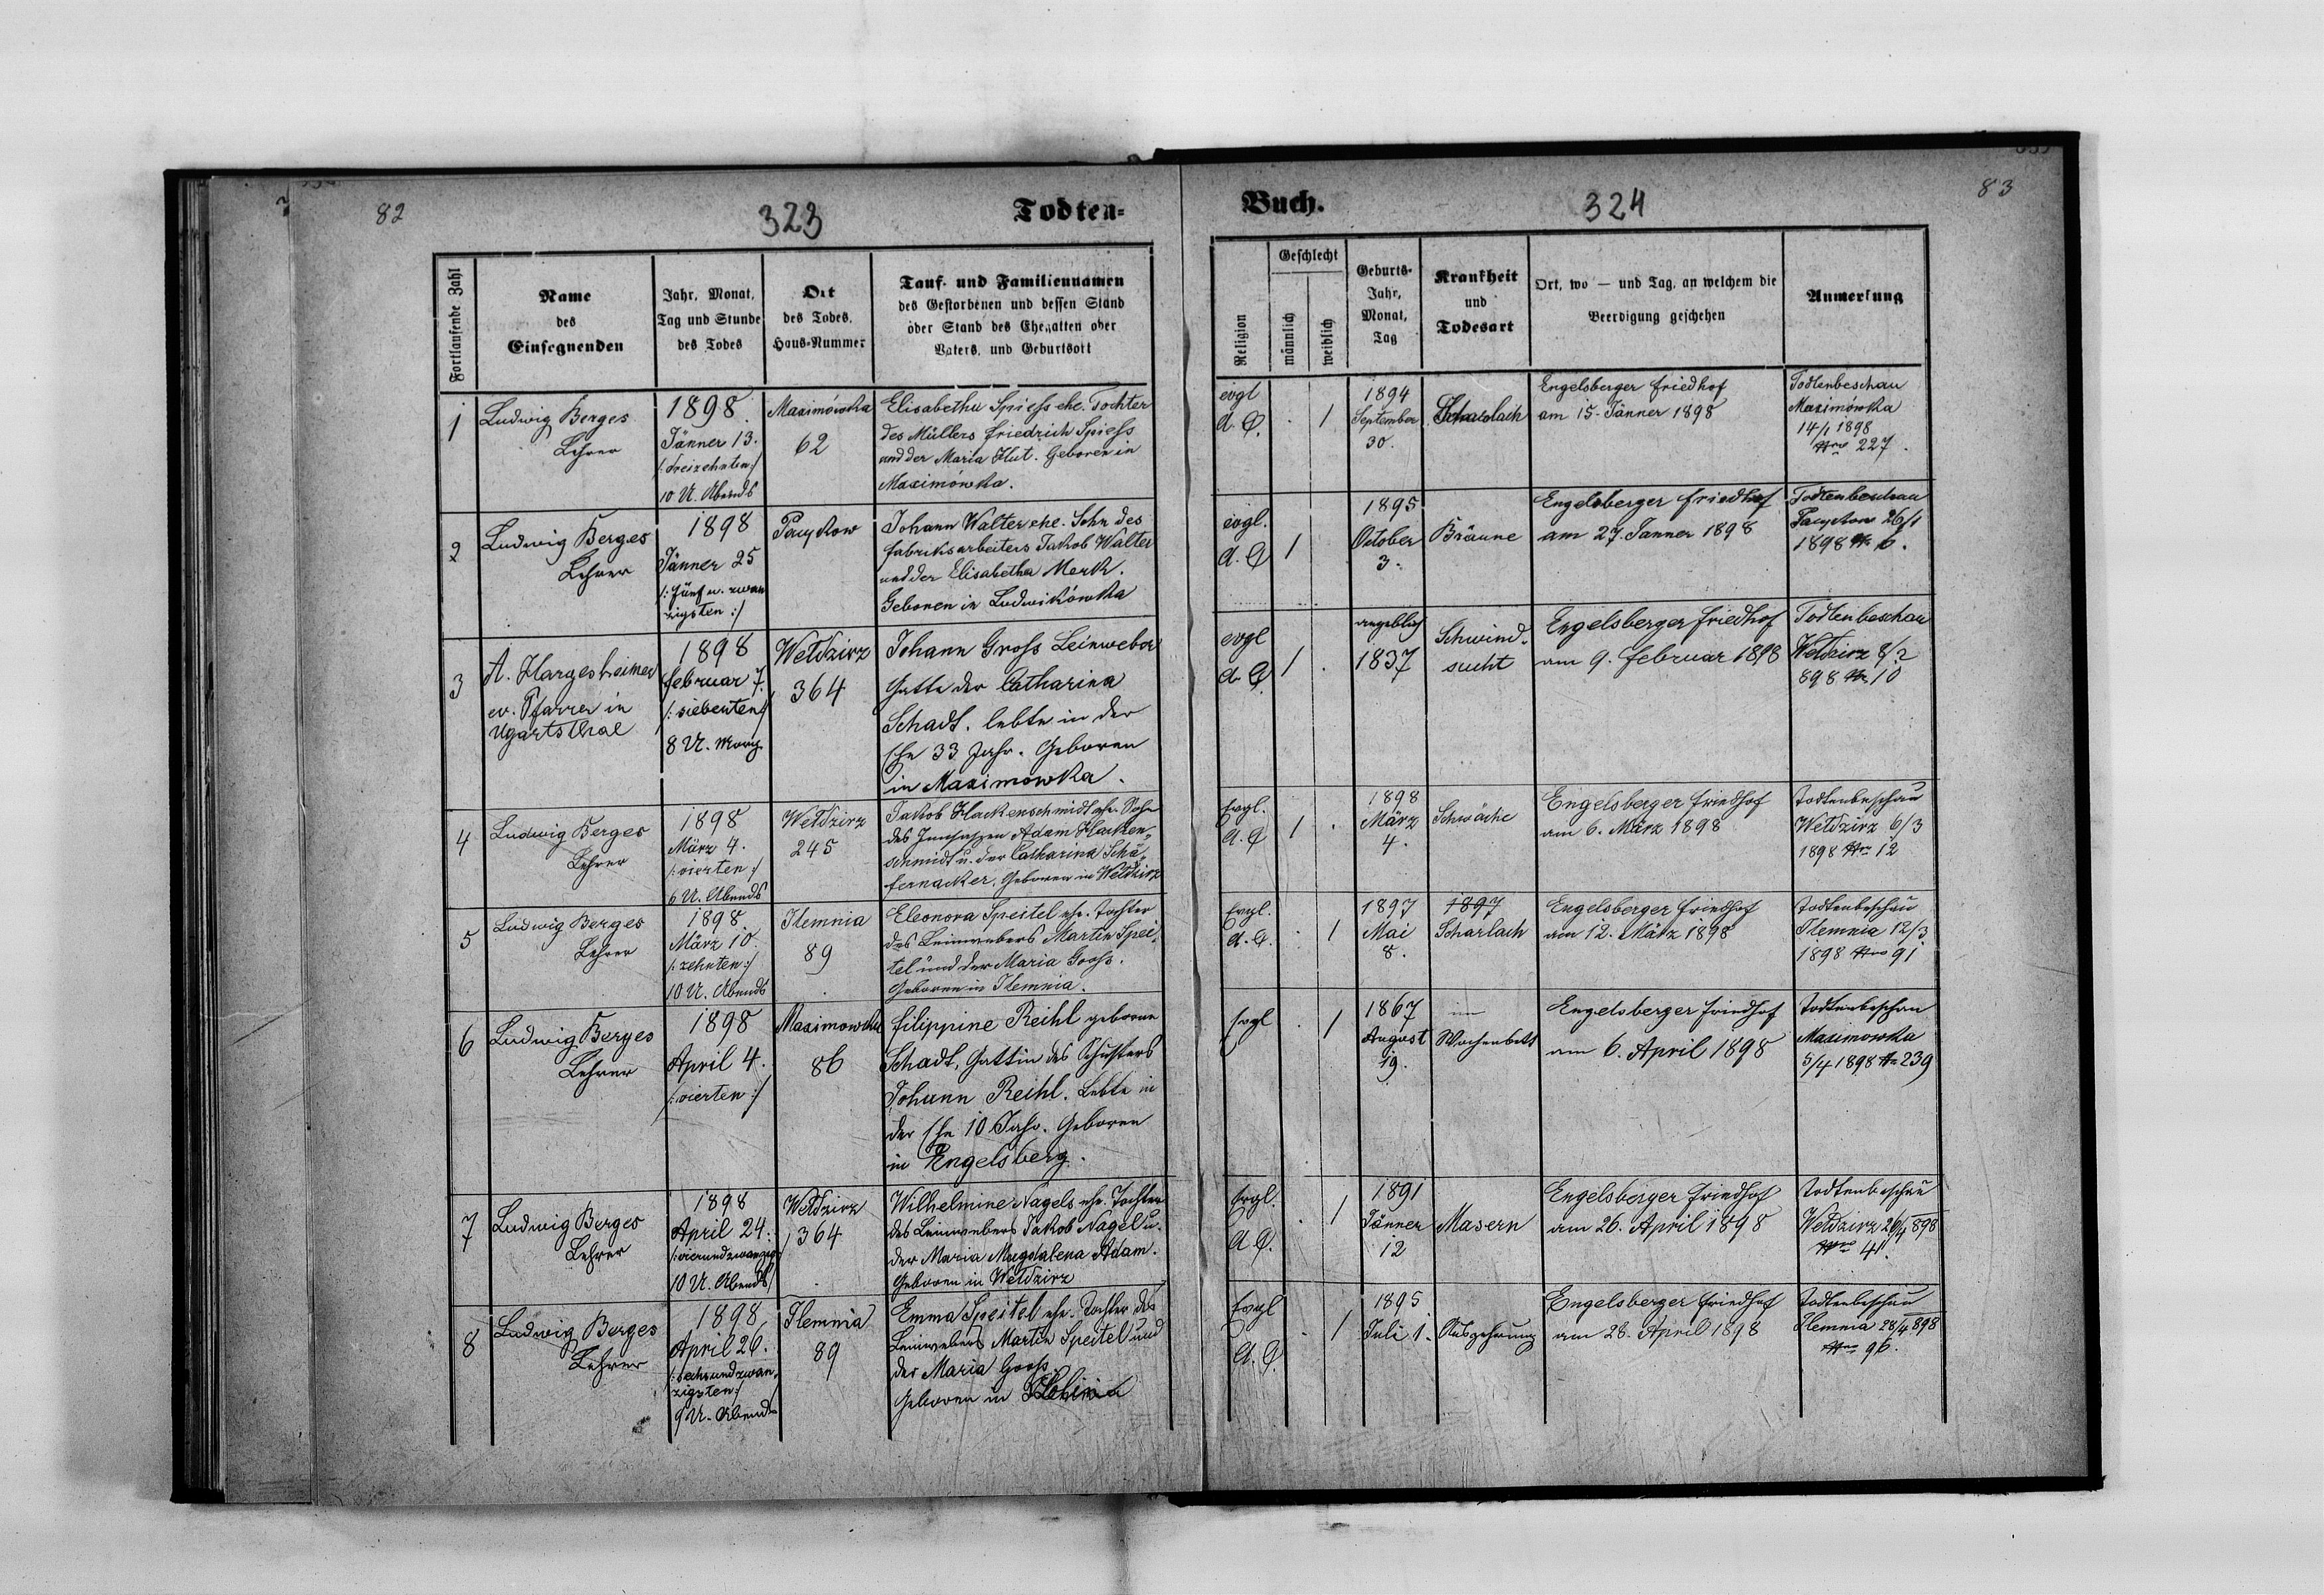 82
323
Todten-
Fortlaufende Zahl
Name
des
Einsegnenden
Jahr, Monat,
Tag und Stunde
des Todes
Ort
des Todes,
Haus-Nummer
Tauf- und Familiennamen
des Gestorbenen und dessen Stand
oder Stand des Ehegatten oder
Vaters, und Geburtsort
1
Ludwig Berges
Lehrer
1898.
Jänner 13.
/: dreizehnten :/
10 U. Abends
Maximówka
62
Elisabetha Spiess ehe. Tochter
des Müllers Friedrich Spiess
und der Maria Hut. Geboren in
Maximówka.
2
Ludwig Berges
Lehrer
1898
Jänner 25
/: fünf u. zwan
zigsten :/
Johann Walter ehe. Sohn des
Fabriksarbeiters Jakob Walter
und der Elisabetha Merk.
Geboren in Ludwikówka
3
A. Hargesheimer
ev. Pfarrer in
Ugartsthal
1898
Februar 7.
/: siebenten :/
8 U. Morg.
Weldzirz
364
Johann Gross Leinweber
Gatte der Catharina
Schadt. lebte in der
Ehe 33 Jahr. Geboren
in Maximowka.
4
Ludwig Berges
Lehrer
1898
März 4.
/: vierten :/
6 U. Abends
Weldzirz
245
Jakob Hackenschmidt ehe. Sohn
des Innsassen Adam Hacken-
schmidt u. der Catharina Schä-
fernacker, Geboren in Weldzirz
5
Ludwig Berges
Lehrer
1898
März 10.
/: zehnten :/
10 U. Abends
Ilemnia
89
Eleonora Speitel ehe. Tochter
des Leinwebers Martin Spei-
tel und der Maria Gooss.
Geboren in Ilemnia.
6
Ludwig Berges
Lehrer
1898
April 4.
/: vierten :/
Maximowka
86
Filippine Reihl geborene
Schadt, Gattin des Schusters
Johann Reihl. Lebte in
der Ehe 10 Jahr. Geboren
in Engelsberg.
7
Ludwig Berges
Lehrer
1898
April 24.
/: vierundzwanzig
10 U. Abends/
Weldzirz
364
Wilhelmine Nagel ehe. Tochter
des Leinwebers Jakob Nagel u.
der Maria Magdalena Adam.
Geboren in Weldzirz
8
Ludwig Berges
Lehrer
1898
April 26.
/: sechsundzwan-
zigsten :/
9 U. Abends
Ilemnia
89
Emma Speitel ehe. Tochter des
Leinwebers Martin Speitel und
der Maria Gooss.
Geboren in
83
Buch.
324
Religion
Geschlecht
männlich
weiblich
Geburts-
Jahr,
Monat,
Tag
Krankheit
und
Todesart
Ort, wo — und Tag, an welchem die
Beerdigung geschehen
Anmerkung
evgl
A. C.
1
1894
September
30.
Scharlach
Engelsberger Friedhof
am 15. Jänner 1898
Todtenbeschau
Maximówka
14/1 1898
Nro 227.
evgl.
A. C.
1
1895
October
3.
Bräune
Engelsberger Friedhof
am 27. Janner 1898
Todtenbeschau
26/1
1898 Nr 6.
evgl
A. C.
1
angeblich
1837
Schwind-
sucht
Engelsberger Friedhof
am 9. Februar 1898
Todtenbeschau
Weldzirz 8/2
898 Nr 10
Evgl.
A. C.
1
1898
März
4.
Schwäche
Engelsberger Friedhof
am 6. März 1898
Todtenbeschau
Weldzirz 6/3
1898 Nro 12
Evgl.
A. C.
1
1897
Mai
8.
1897
Scharlach
Engelsberger Friedhof
am 12. März 1898
Todtenbeschau
Ilemnia 12/3
1898 Nro 91
Evgl
1
1867
August
19.
im
Wochenbett
Engelsberger Friedhof
am 6. April 1898
Todtenbeschau
Maximowka
5/4 1898 Nr 239
Evgl.
A. C.
1
1891
Jänner
12
Masern
Engelsberger Friedhof
am 26. April 1898
Todtenbeschau
Weldzirz 26/4 898
Nro 41.
Evgl
A. C.
1
1895
Juli 1.
Auszehrung
Engelsberger Friedhof
am 28. April 1898
Todtenbeschau
Ilemnia 28/4 898
Nro 96.